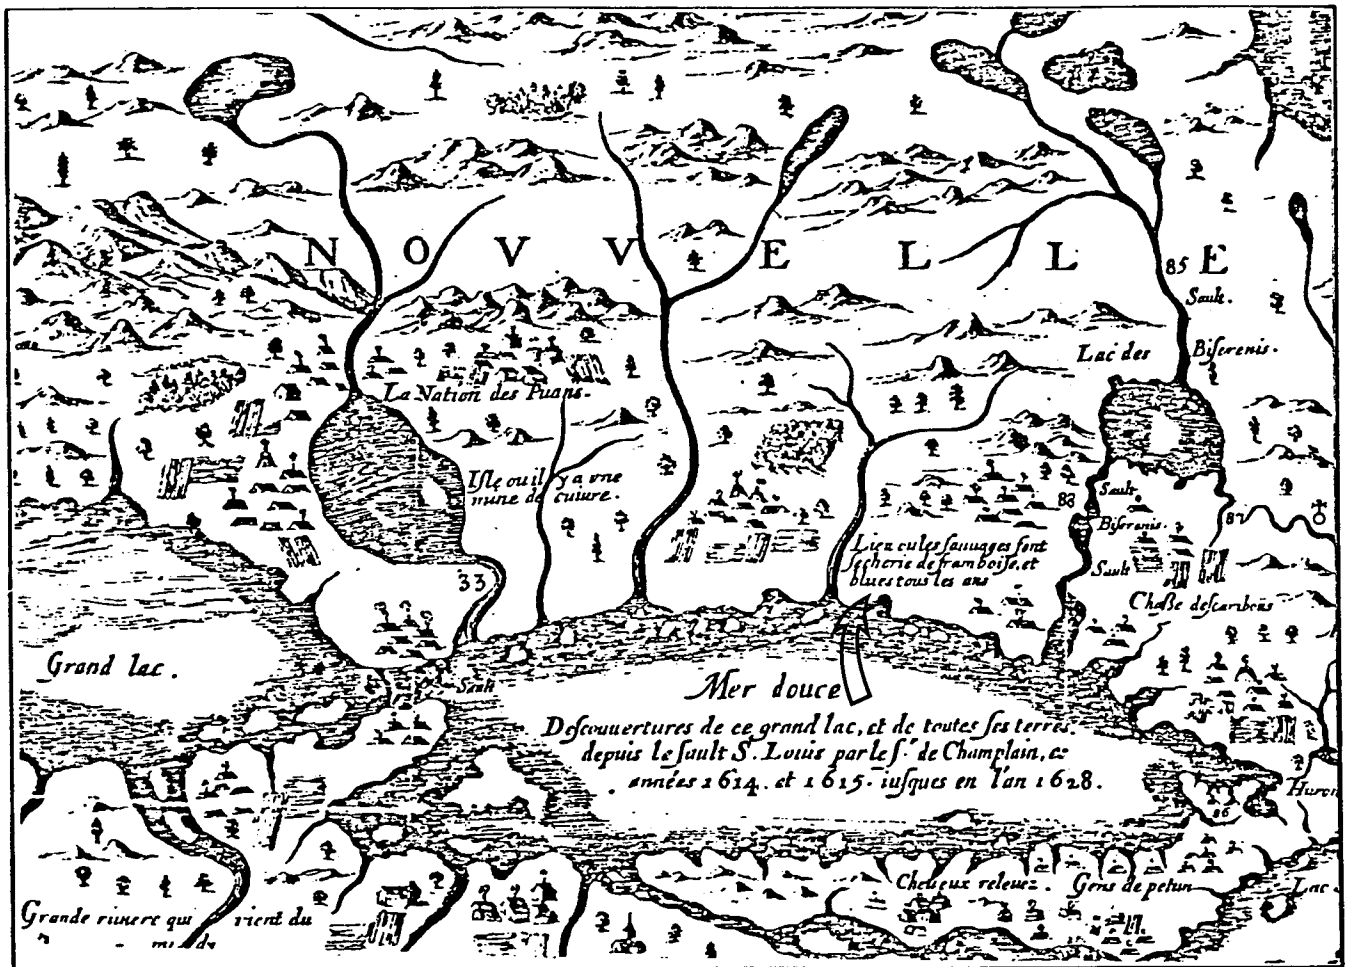 NOVVELLE
85
Sault.
Lac des Biserenis.
La Nation des Puans.
Isle ou il y a vne
mine de cuivre.
83
Sault
82
Biserenis.
Lieu ou les sauuages font
secherie de framboise, et
blues tous les ans
Sault
33
Chasse des caribous
Grand lac.
Sault
Mer douce
Descouuertures de ce grand lac, et de toutes ses terres.
depuis le sault St. Louis par le sr. de Champlain, es
années 1614. et 1615. iusques en l'an 1628.
Huron
86
Cheueux releuez. Gens de petun
Lac.
Grande riuiere qui vient du
midy